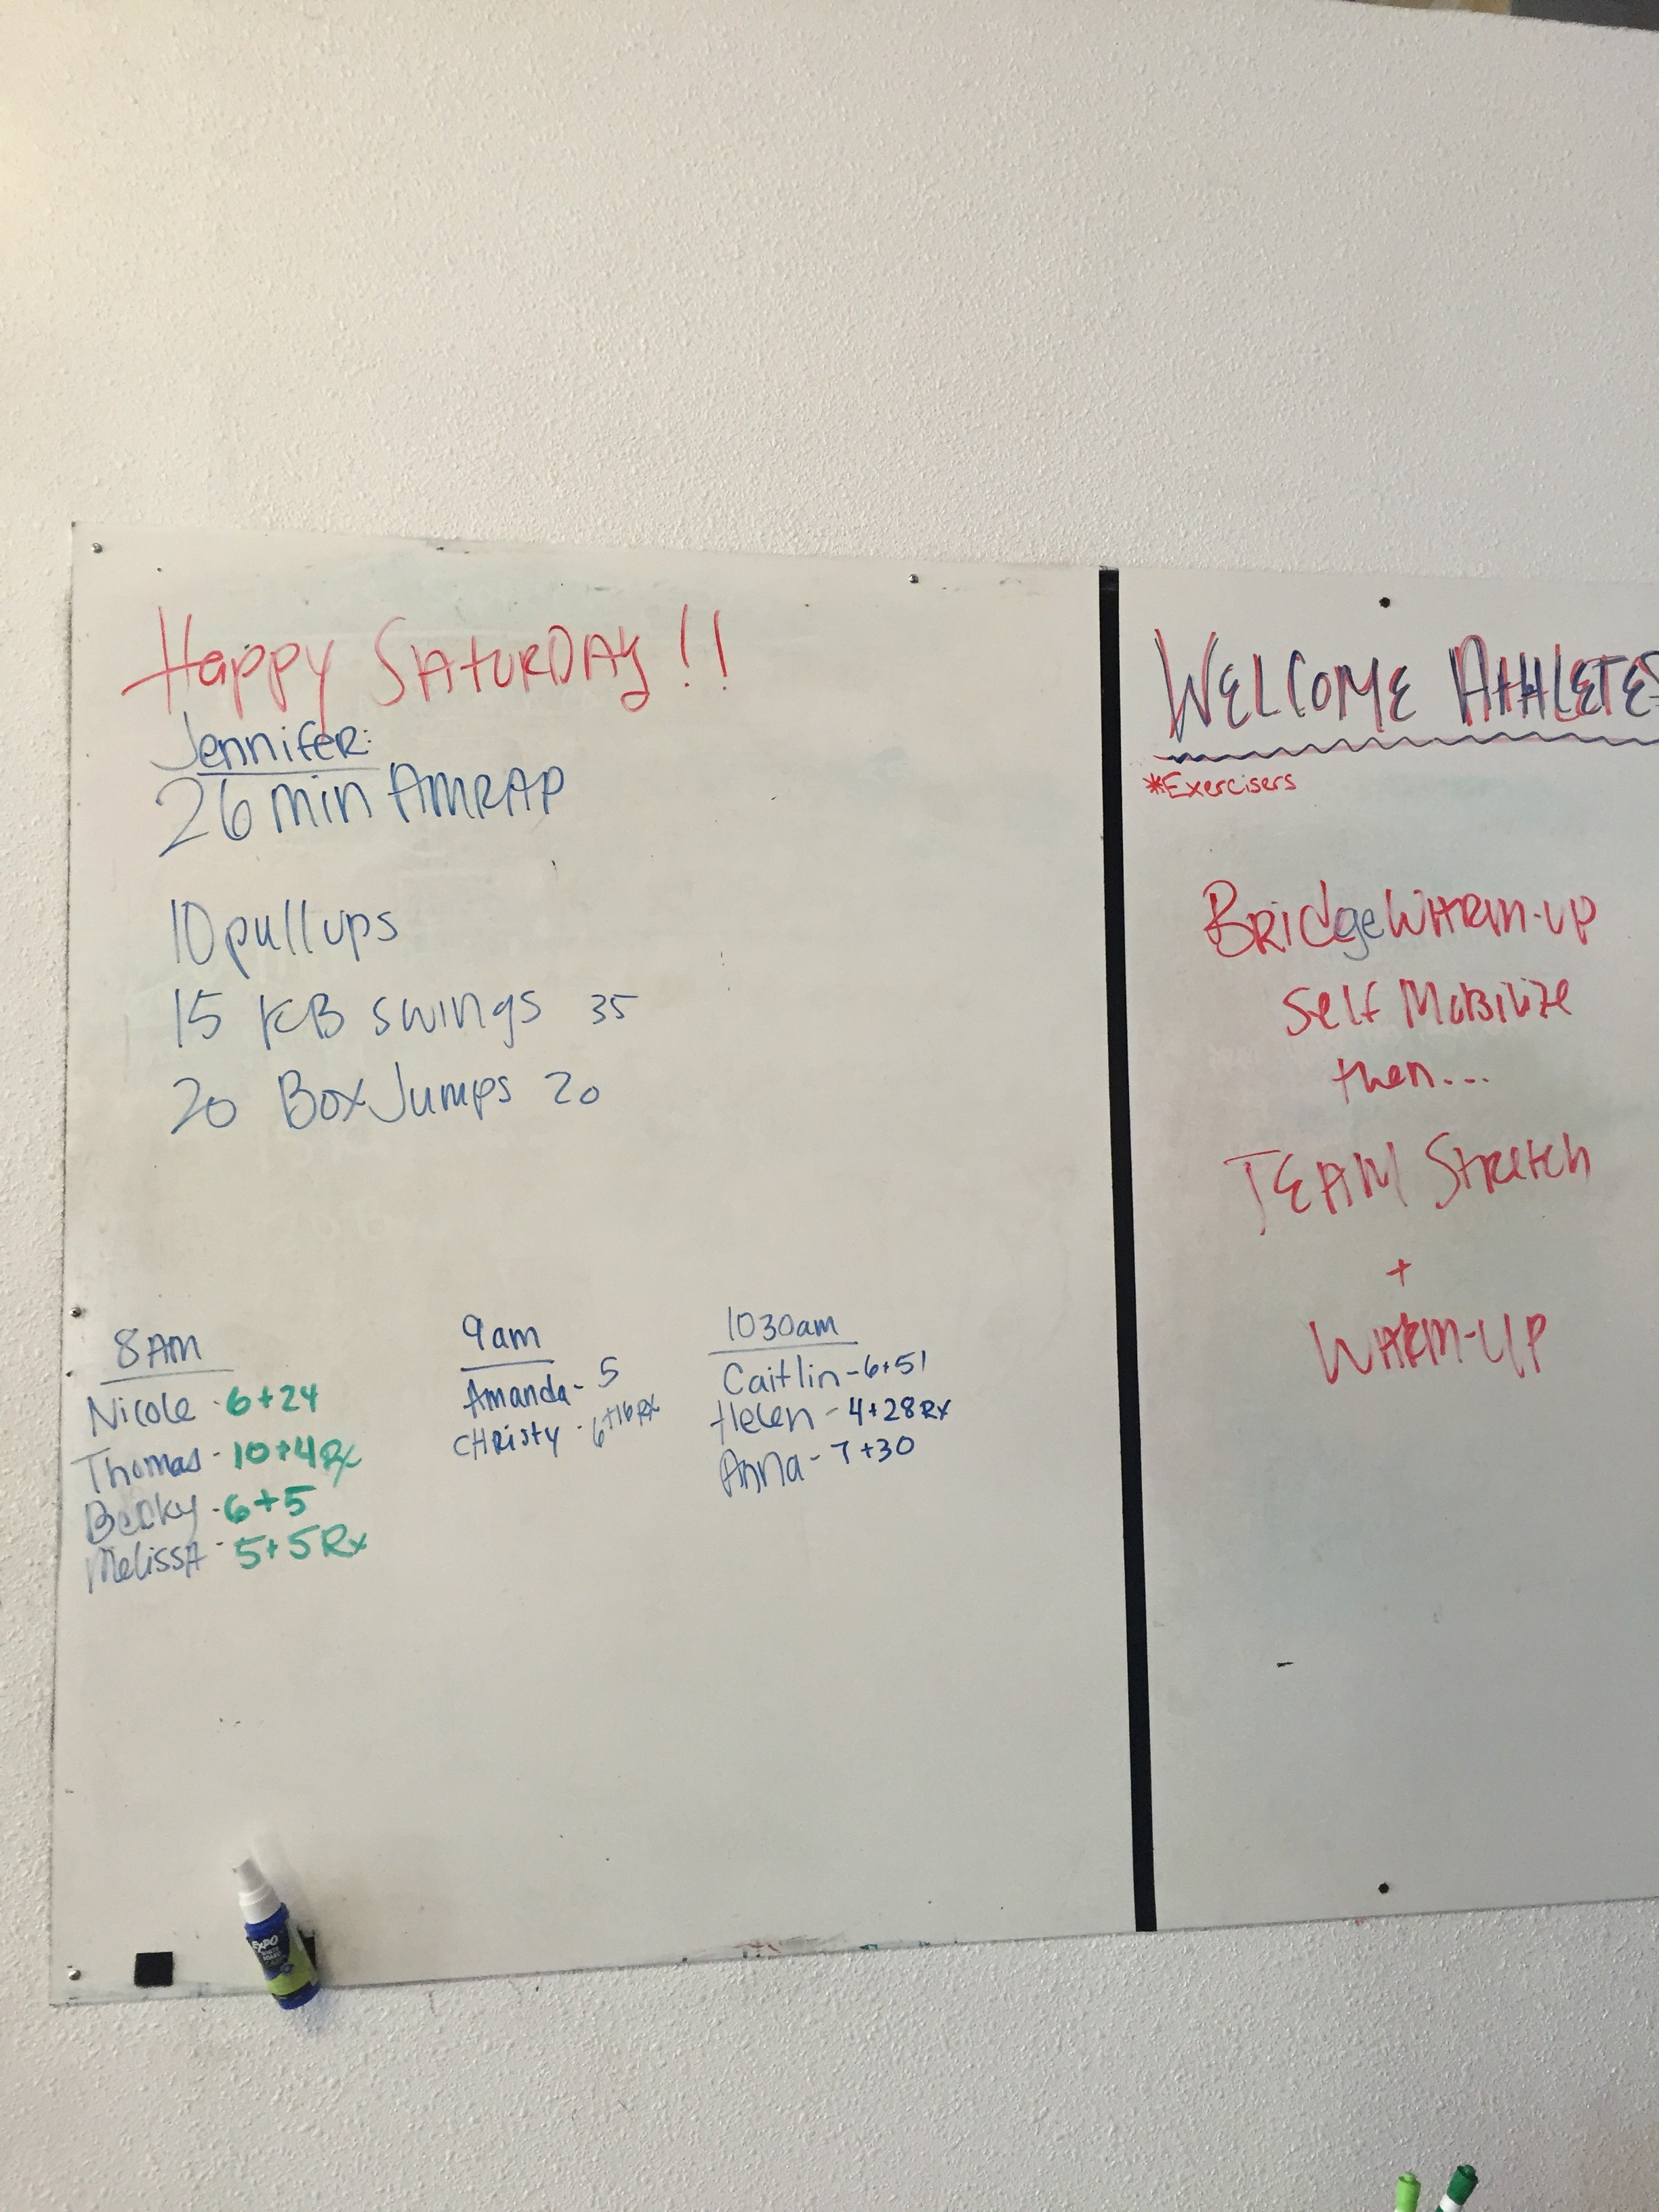 Happy SATURDAY!!
Jennifer:
26 min AMRAP
10 pull ups
15 KB swings 35
20 Box Jumps 20
8AM
Nicole - 6+24
Thomas - 10+4 Rx
Becky - 6+5
MelissA - 5+5 Rx
9am
Amanda - 5
CHRisty - 6+16 Rx
1030am
Caitlin - 6+51
Helen - 4+28 Rx
Anna - 7+30
WELCOME AtHLETES
*Exercisers
BRidge WARM-UP
Self MoBilize
then...
TEAM Stretch
+
WARM-UP
EXPO
WHITE
BOARD